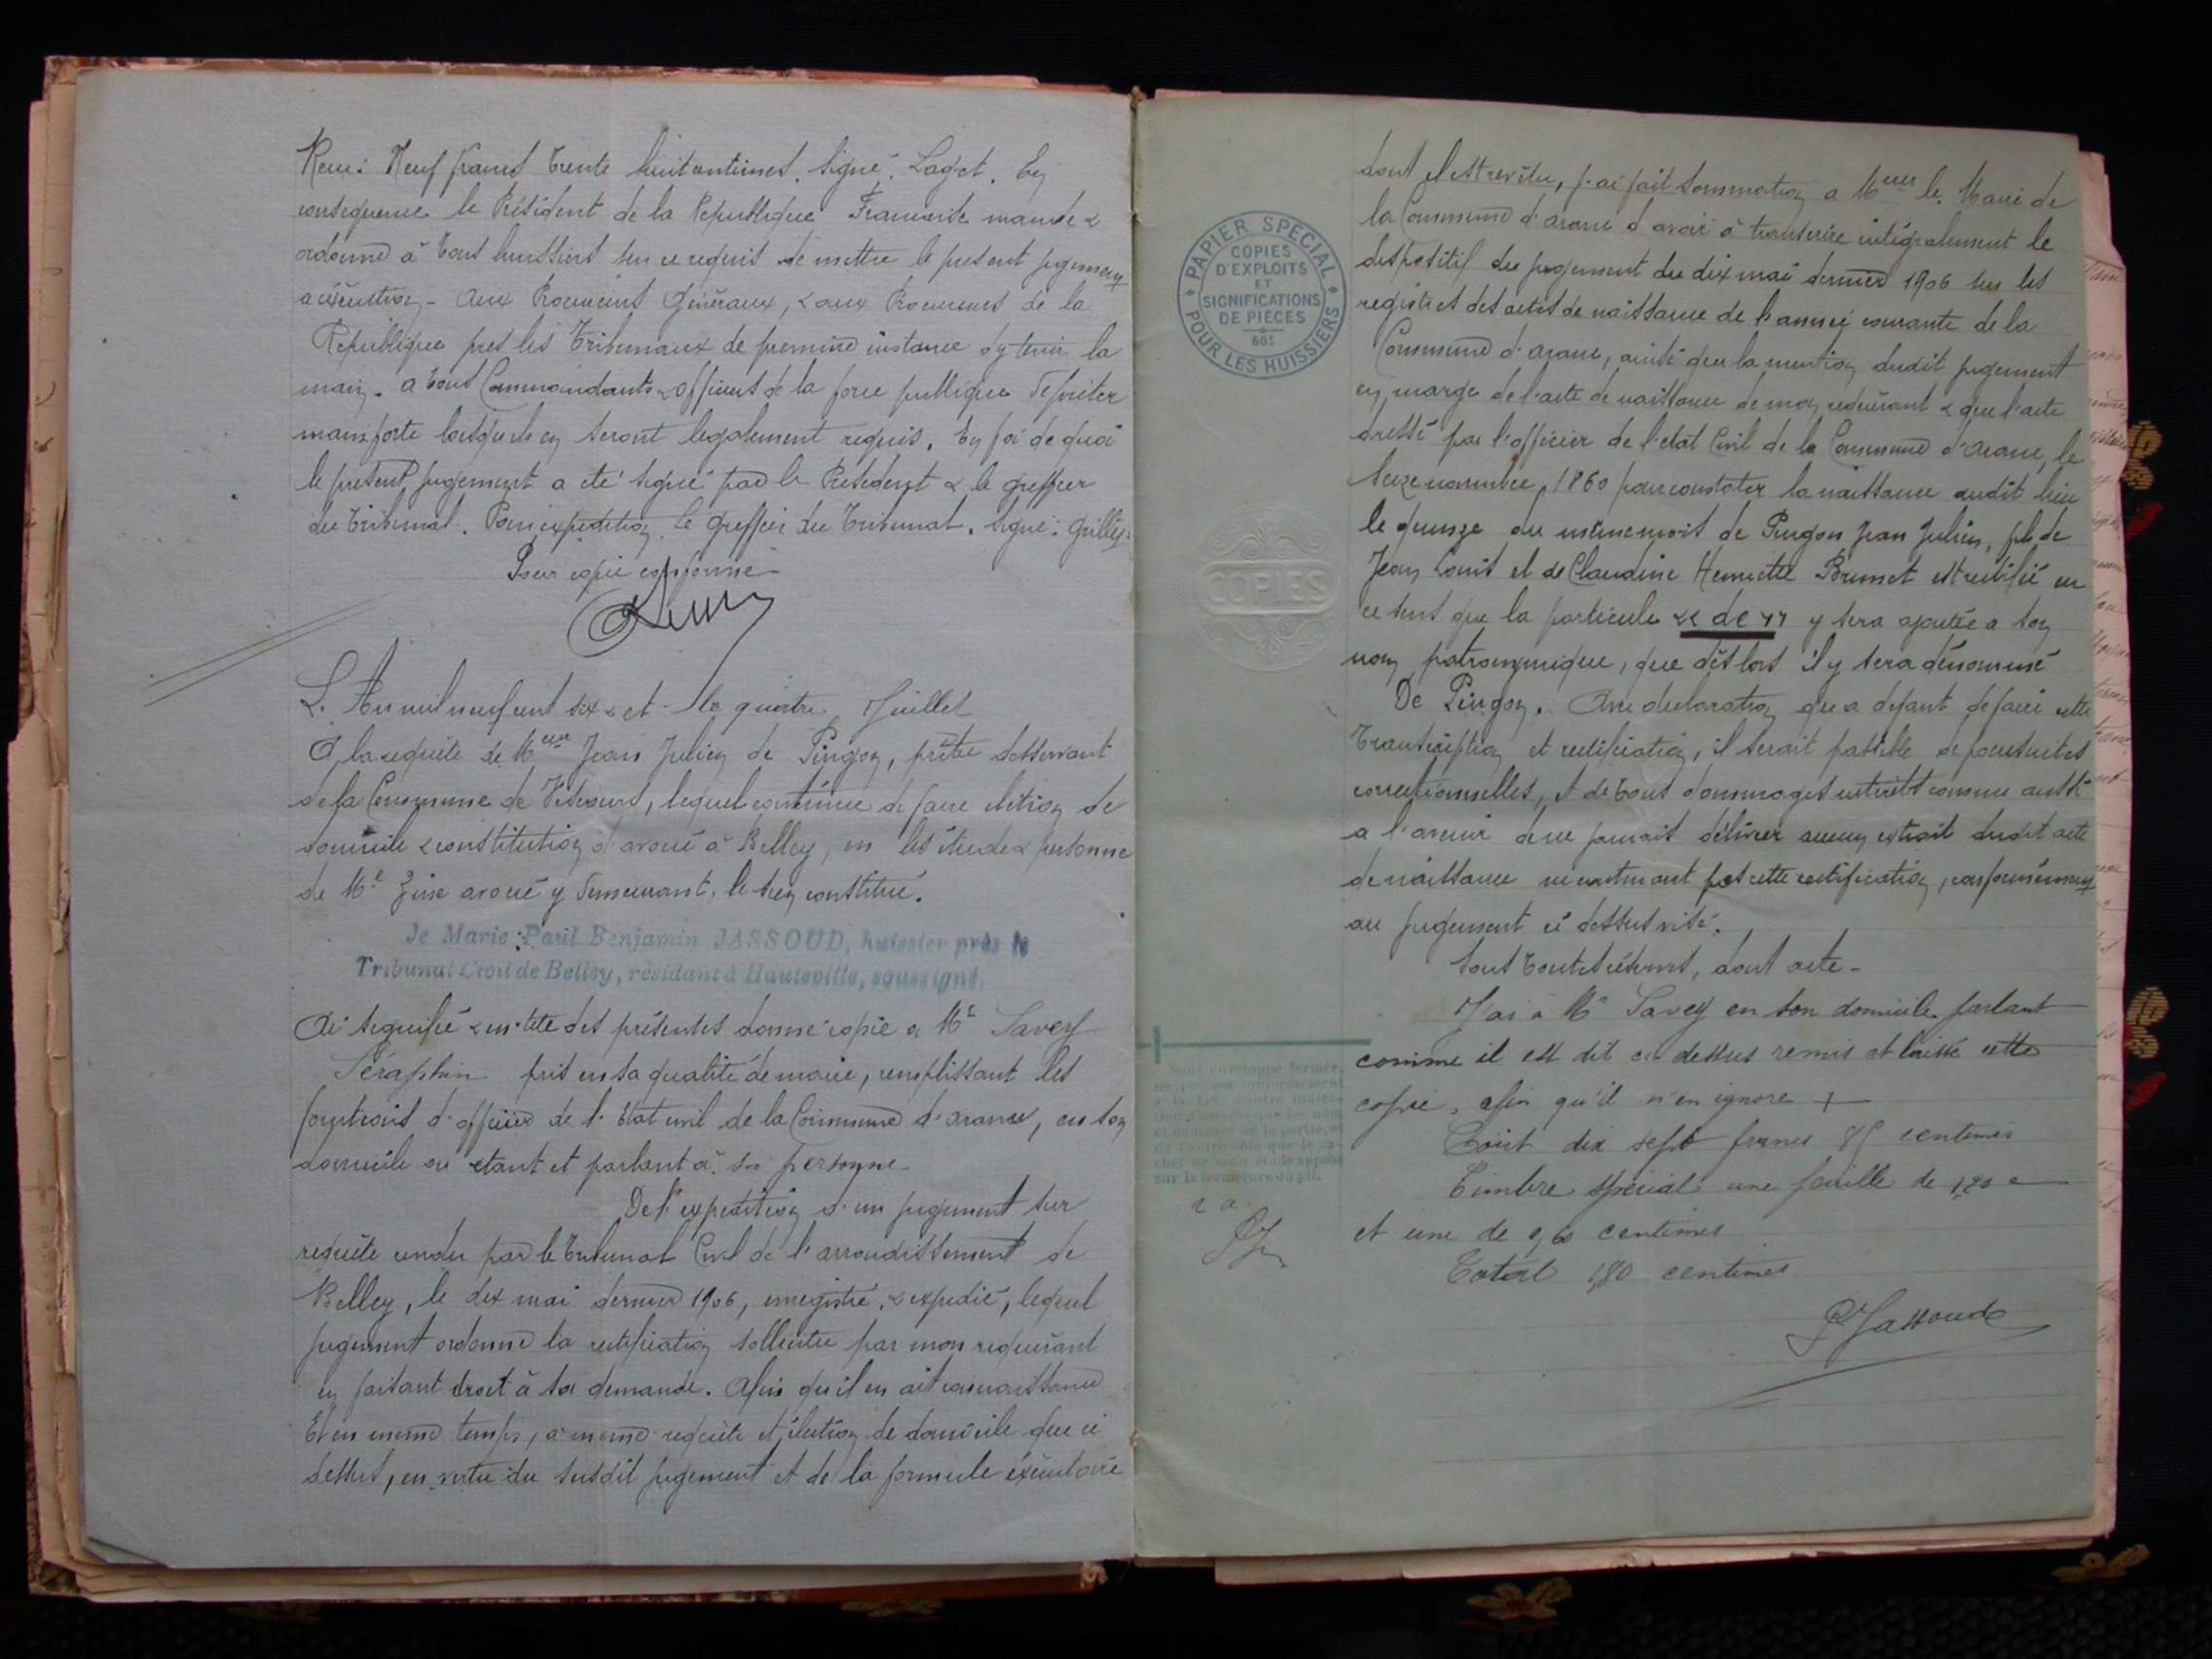 Recu: Neuf francs trente huit centimes. Signé: Laget. En
conséquence le Président de la République Francaise mande &
ordonne à tous huissiers sur ce requis de mettre le present jugement
a exécution - Aux Procureurs Généraux, & aux Procureurs de la
République pres les Tribunaux de premiere instance d'y tenir la
main. a tous Commandants & Officiers de la force publique de preter
main forte lorsqu'ils en seront legalement requis. En foi de quoi
le present jugement a été signé par le President & le greffier
du Tribunal. Pour expedition, le greffier du Tribunal. Signé:
Pour copie conforme
L'An mil neuf cent six & et le quatre Juillet
A la requête de Mseur Jean Julien de Pingon, prêtre desservant
de la Commune de, lequel continue de faire election de
domicile & constitution d'avoué à Belley, en les étude & personne
de Me avoué y demeurant, le sien constitué.
Je Marie Paul Benjamin JASSOUD, huissier près le
Tribunal Civil de Belley, résidant à Hauteville, soussigné,
Ai signifié & en tete des présentes donné copie a Mr Savey
Séraphin pris en sa qualité de maire, remplissant les
fonctions d'officier de l'Etat civil de la Commune d'aranc, en son
domicile ou etant et parlant à sa personne
De l'expedition d'un jugement sur
requête rendu par le Tribunal Civil de l'arrondissement de
Belley, le dix mai dernier 1906, enregistré, & expedié, lequel
jugement ordonne la rectification sollicitée par mon requérant
en faisant droit à sa demande. Afin qu'il en ait connaissance
Et en meme temps, a meme requête et élection de domicile que ci
dessus, en vertu du susdit jugement et de la formule éxécutoire
PAPIER SPECIAL
COPIES
D'EXPLOITS
ET
SIGNIFICATIONS
DE PIECES
60c
POUR LES HUISSIERS
COPIES
dont il est revêtu, j'ai fait sommation a Mseur le Maire de
la Commune d'aranc d'avoir à transcrire intégralement le
dispositif du jugement du dix mai dernier 1906 sur les
registres des actes de naissance de l'année courante de la
Commune d'aranc, ainsi que la mention dudit jugement
en marge de l'acte de naissance de mon requérant & que l'acte
dressé par l'officier de l'etat Civil de la Commune d'Aranc, le
seize novembre 1860 pour constater la naissance audit lieu
le quinze du même mois de Pingon Jean Julien, fils de
Jean Louis et de Claudine Henriette Brunet est rectifié en
ce sens que la particule << de >> y sera ajoutée a son
nom patronymique, que dès lors il y sera dénommé
De Pingon. Avec declaration que a defaut de faire cette
transcription et rectification, il serait passible de poursuites
correctionnelles, et de tous dommages interêts comme aussi
a l'avenir de ne jamais délivrer aucun extrait dudit acte
de naissance ne contenant pas cette rectification, conformément
au jugement ci dessus visé.
Sous toutes réserves, dont acte -
J'ai à Mr Savey en son domicile parlant
comme il est dit ci dessus remis et laissé cette
copie, afin qu'il n'en ignore
Coût dix sept francs 85 centimes
Timbre spécial une feuille de 1,20 c
et une de 0,60 centimes
Total 1,80 centimes
PJassoud
Sous enveloppe fermée,
sur la fermeture du pli.